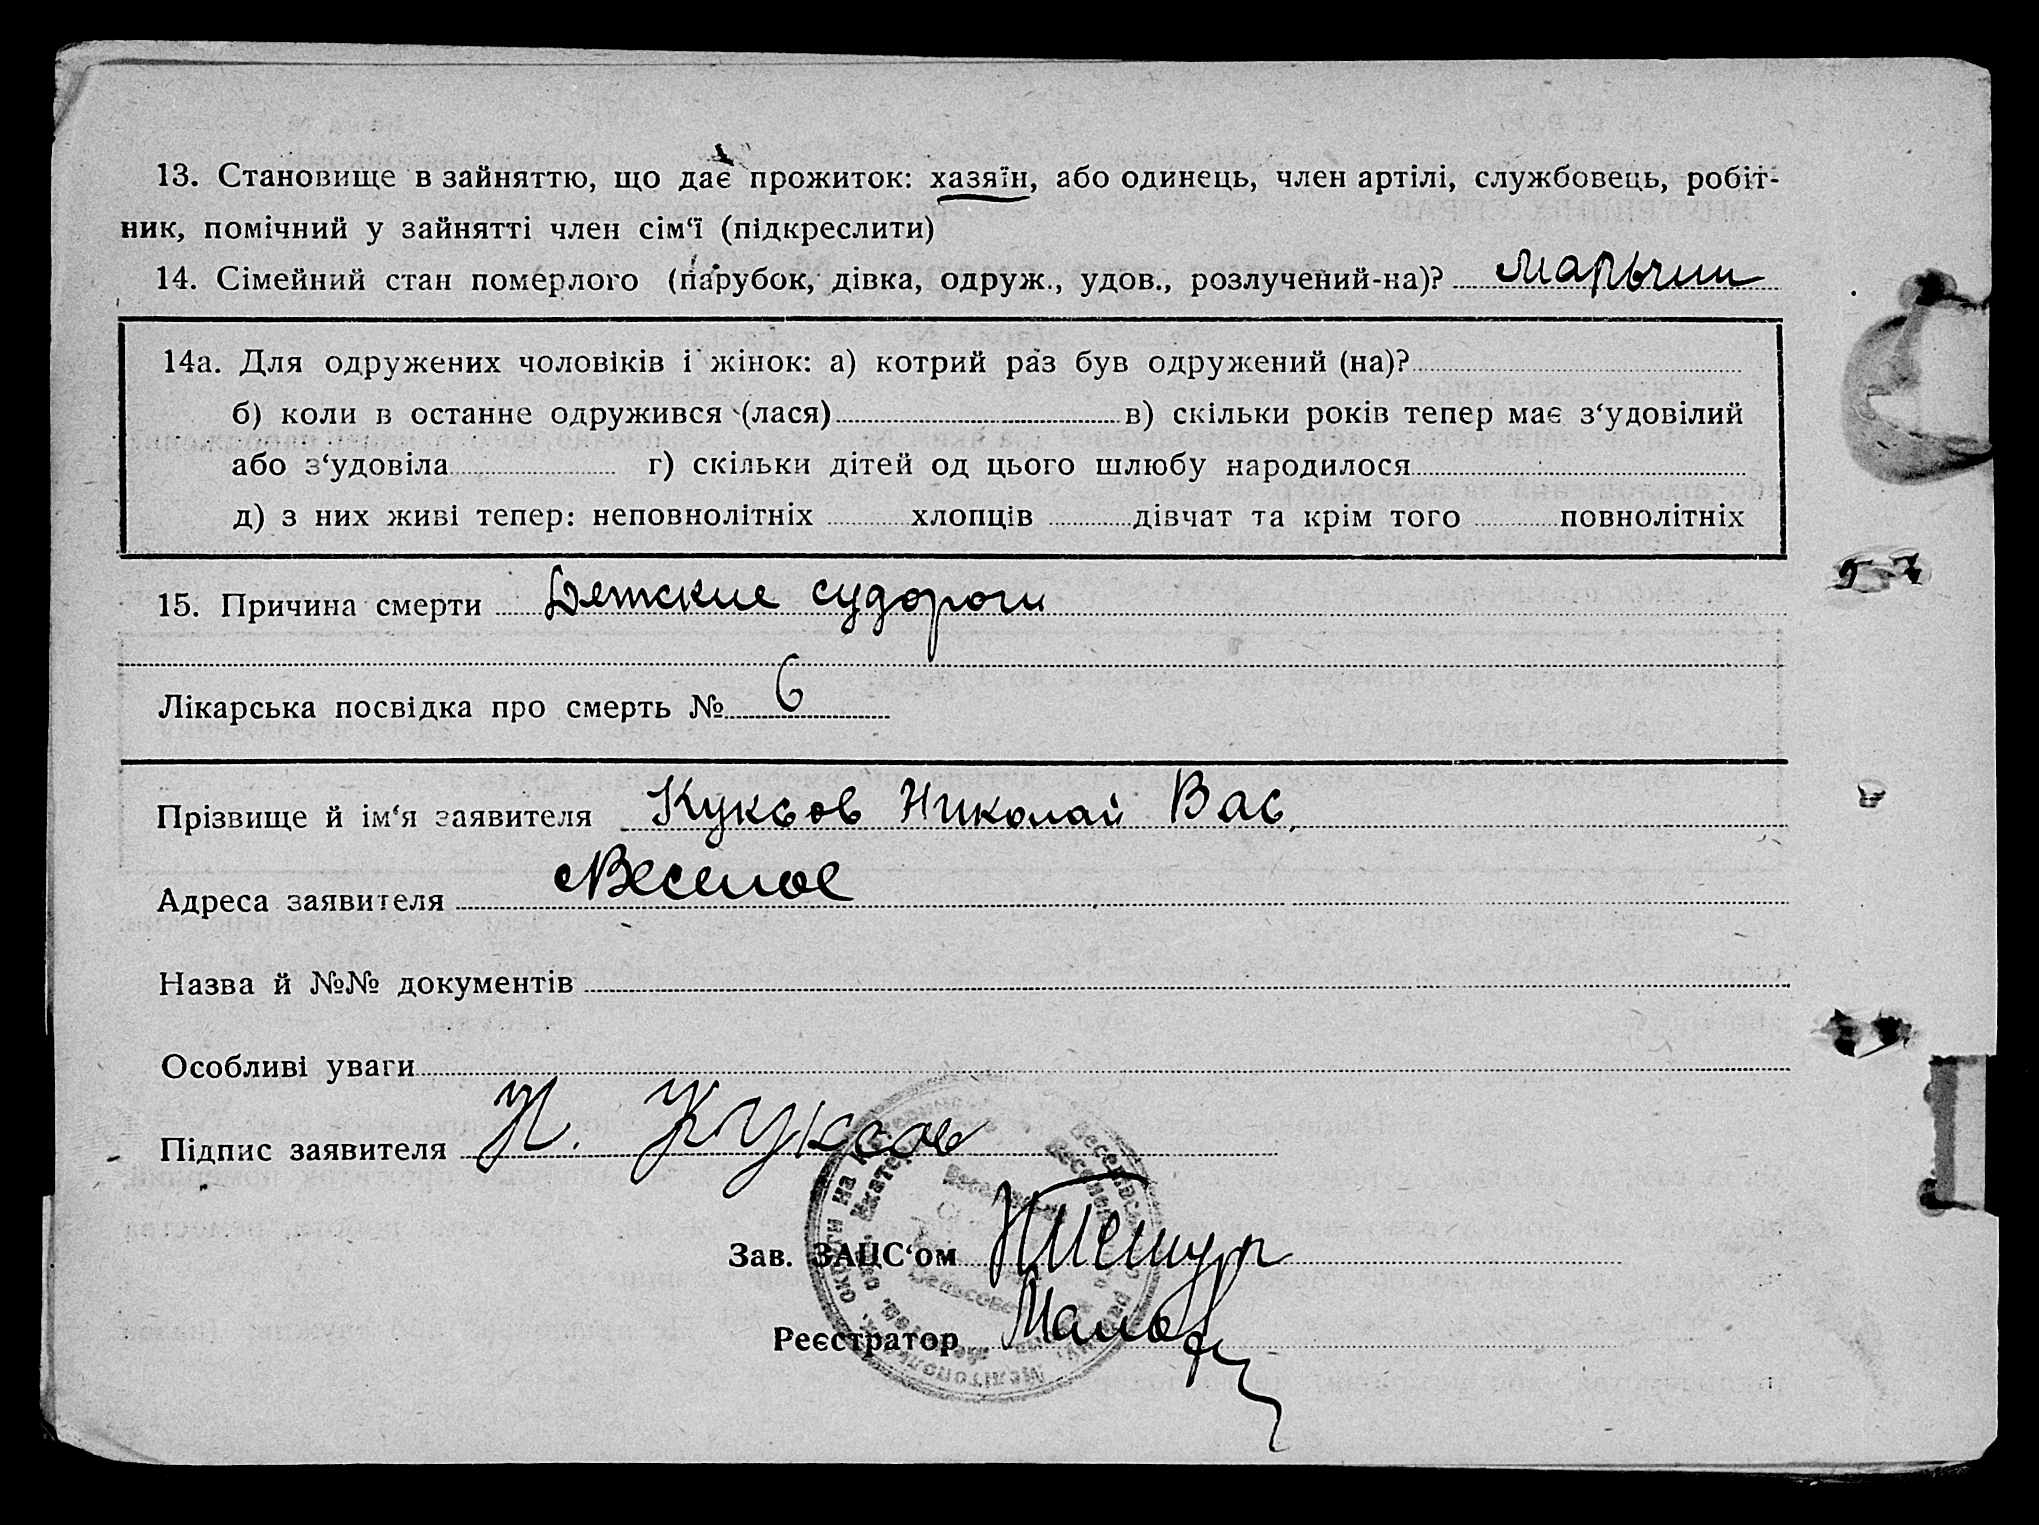 13. Становище в зайняттю, що дає прожиток: хазяїн, або одинець, член артілі, службовець, робіт-
ник, помічний у зайнятті член сім‘ї (підкреслити)
14. Сімейний стан померлого (парубок, дівка, одруж., удов., розлучений-на)?
14а. Для одружених чоловіків і жінок: а) котрий раз був одружений (на)?
б) коли в останне одружився (лася) в) скільки років тепер має з‘удовілий
або з‘удовіла г) скільки дітей од цього шлюбу народилося
д) з них живі тепер: неповнолітніх хлопців дівчат та крім того повнолітніх
15. Причина смерти Детские судороги
Лікарська посвідка про смерть № 6
Прізвище й ім‘я заявителя Куксов Николай Вас.
Адреса заявителя Веселое
Назва й №№ документів
Особливі уваги
Підпис заявителя Н. Куксов
Зав. ЗАЦС‘ом
Реєстратор